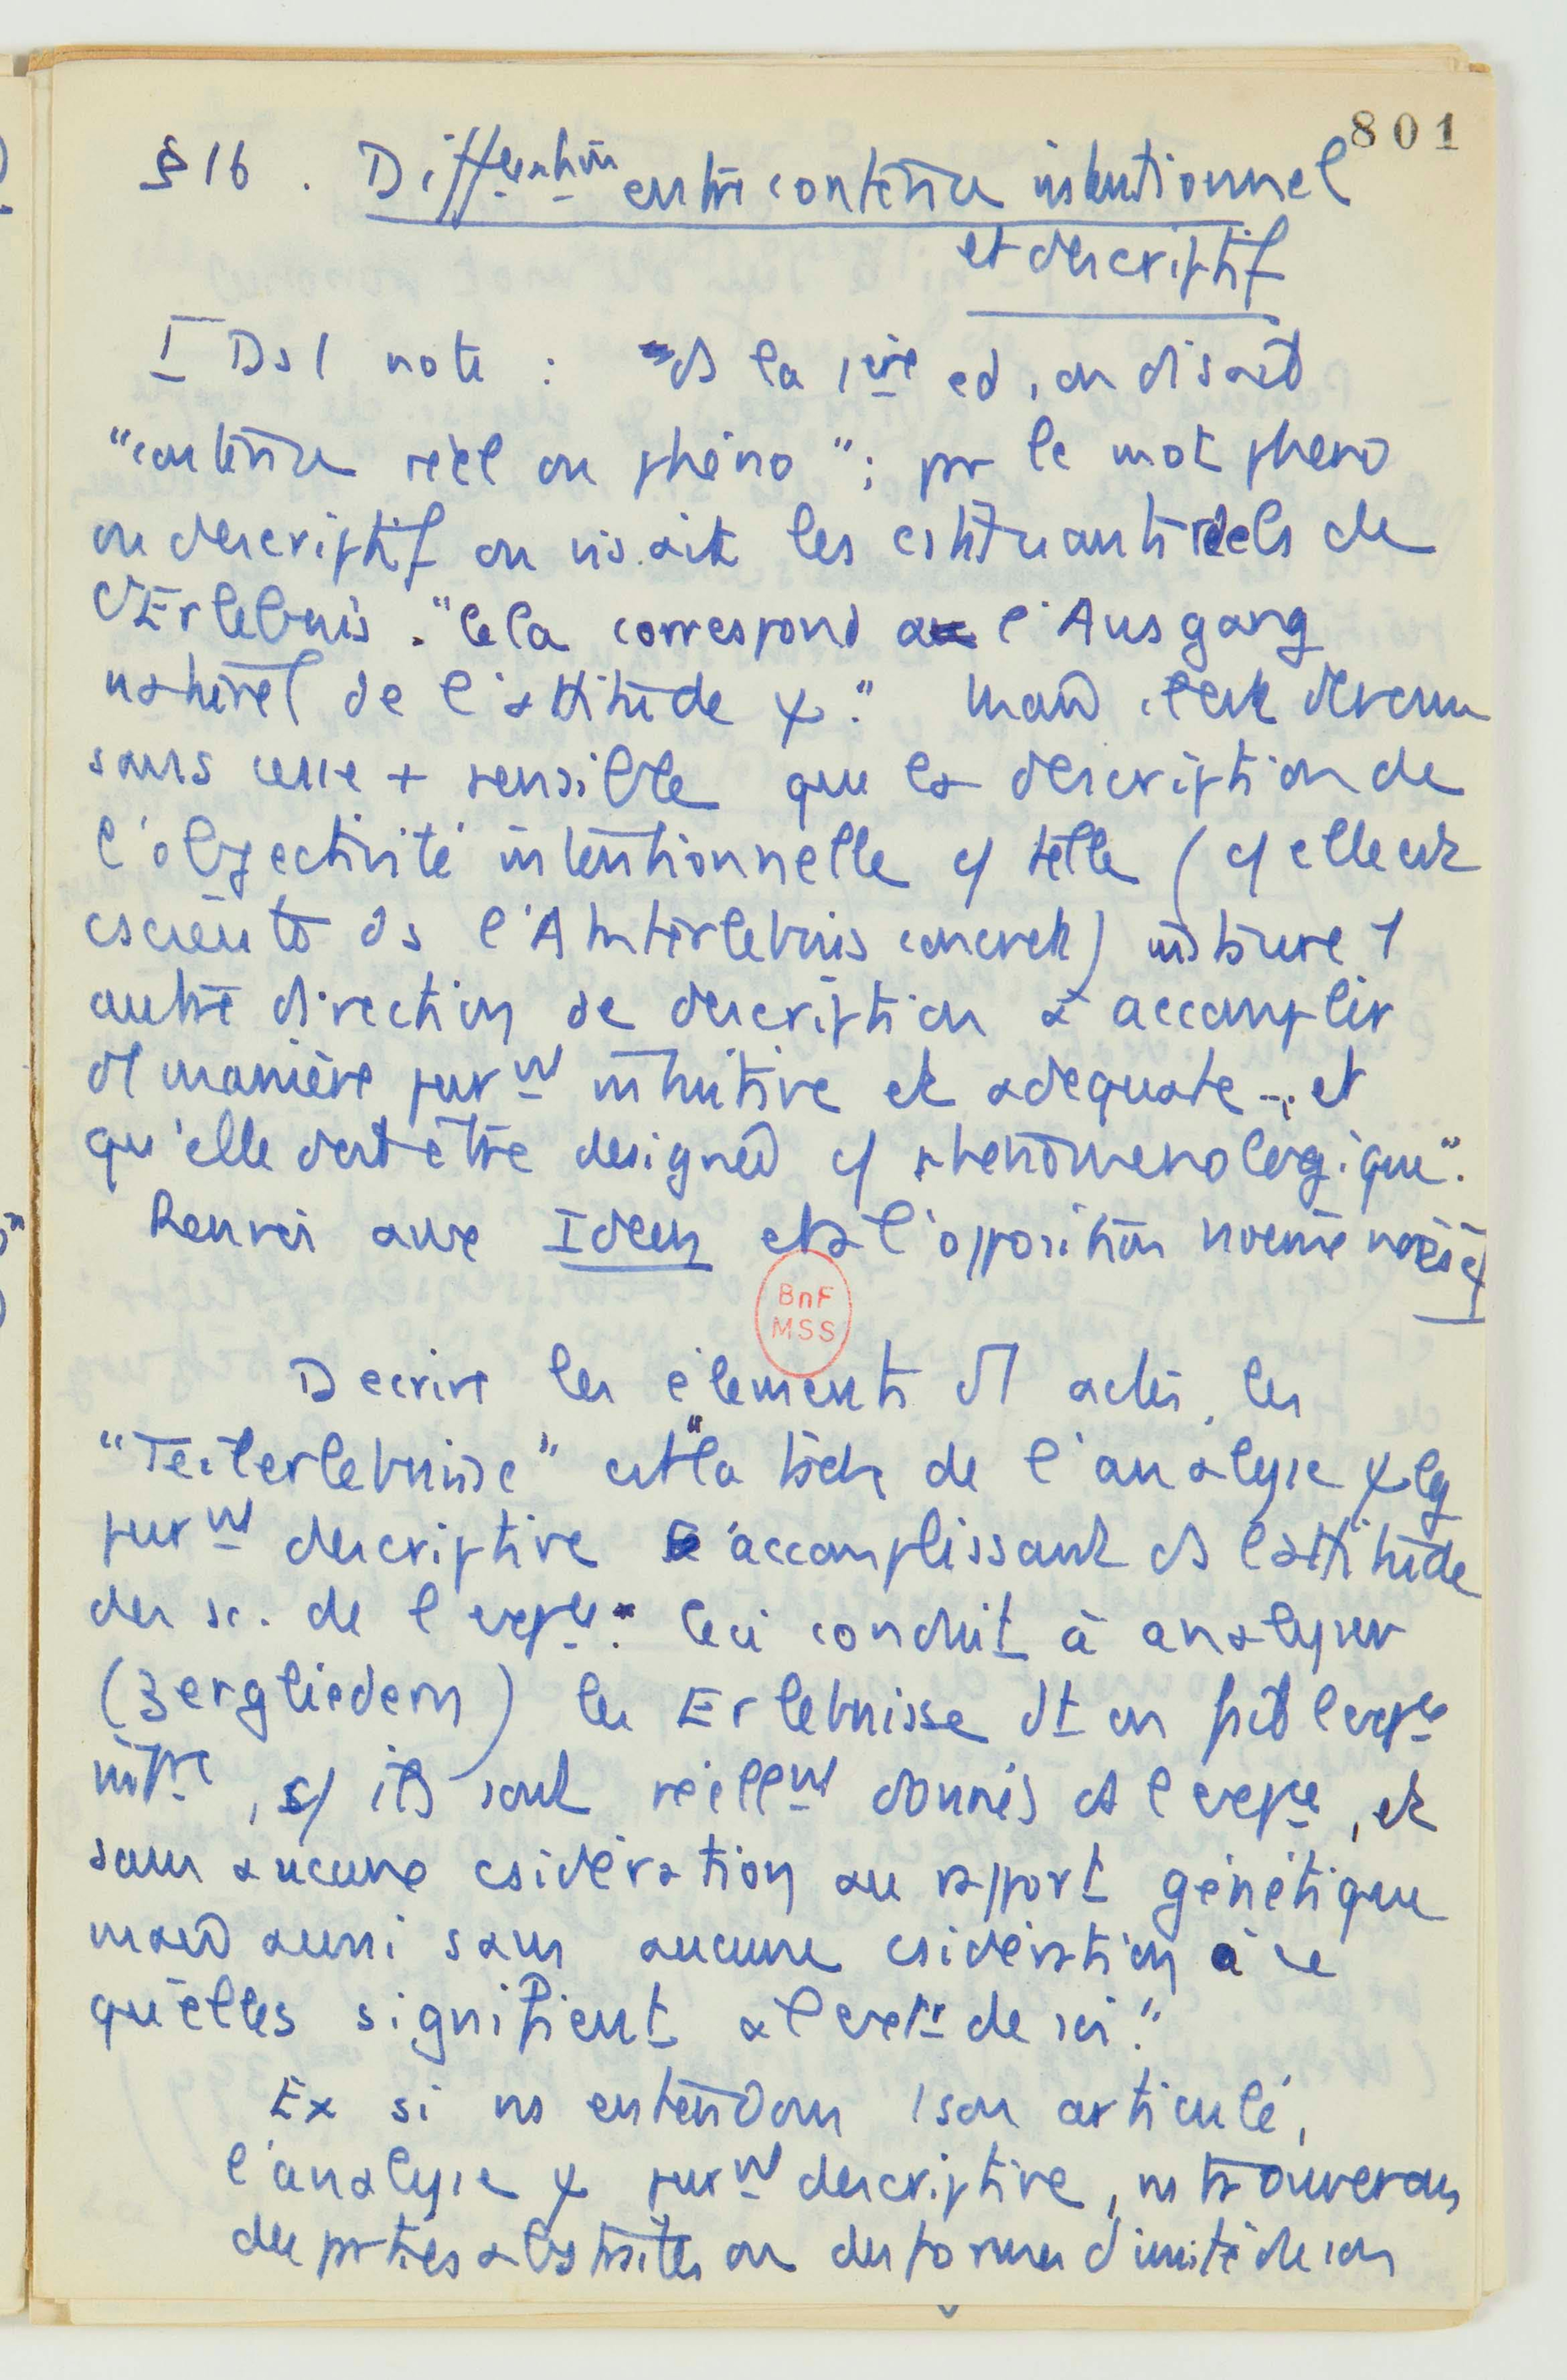 801
§ 16. Différentiation entre contenu intentionnel
et descriptif
I Ds 1 note : ds la 1ère ed, on disait
"contenu réel ou phéno" ; pr le mot phéno
ou descriptif on visait les cstituants réels de
d'Erlebnis. "Cela correspond a l'Ausgang
naturel de l'attitude ψ." Mais il est devenu
sans cesse + sensible que la description de
l'objectivité intentionnelle c/ telle (c/ elle est
csciente ds l'Akterlebnis concret) instaure 1
autre direction de description à accomplir
d1 manière purnt intuitive et adequate -. et
qu'elle doit être designée c/ phenomenologique".
Renvoi aux Ideen et à l'opposition noème noèse
Decrire les élements d1 acte, les
"Teilerlebnisse" est "la tâche de l'analyse ψlg
purnt descriptive s'accomplissant ds l'attitude
des sc. de l'expce." Ceci conduit à analyser
(Zergliedern) les Erlebnisse dt on fait l'expce
intre, c/ ils sont réellent donnés ds l'expce, et
sans aucune csidération au rapport génétique
mais aussi sans aucune csidération à ce
qu'elles signifient à l'extr de soi."
Ex si ns entendons 1 son articulé,
l'analyse ψ purnt descriptive, ns trouverons
des parties abstraites ou des formes d'unité de son
BnF
MSS